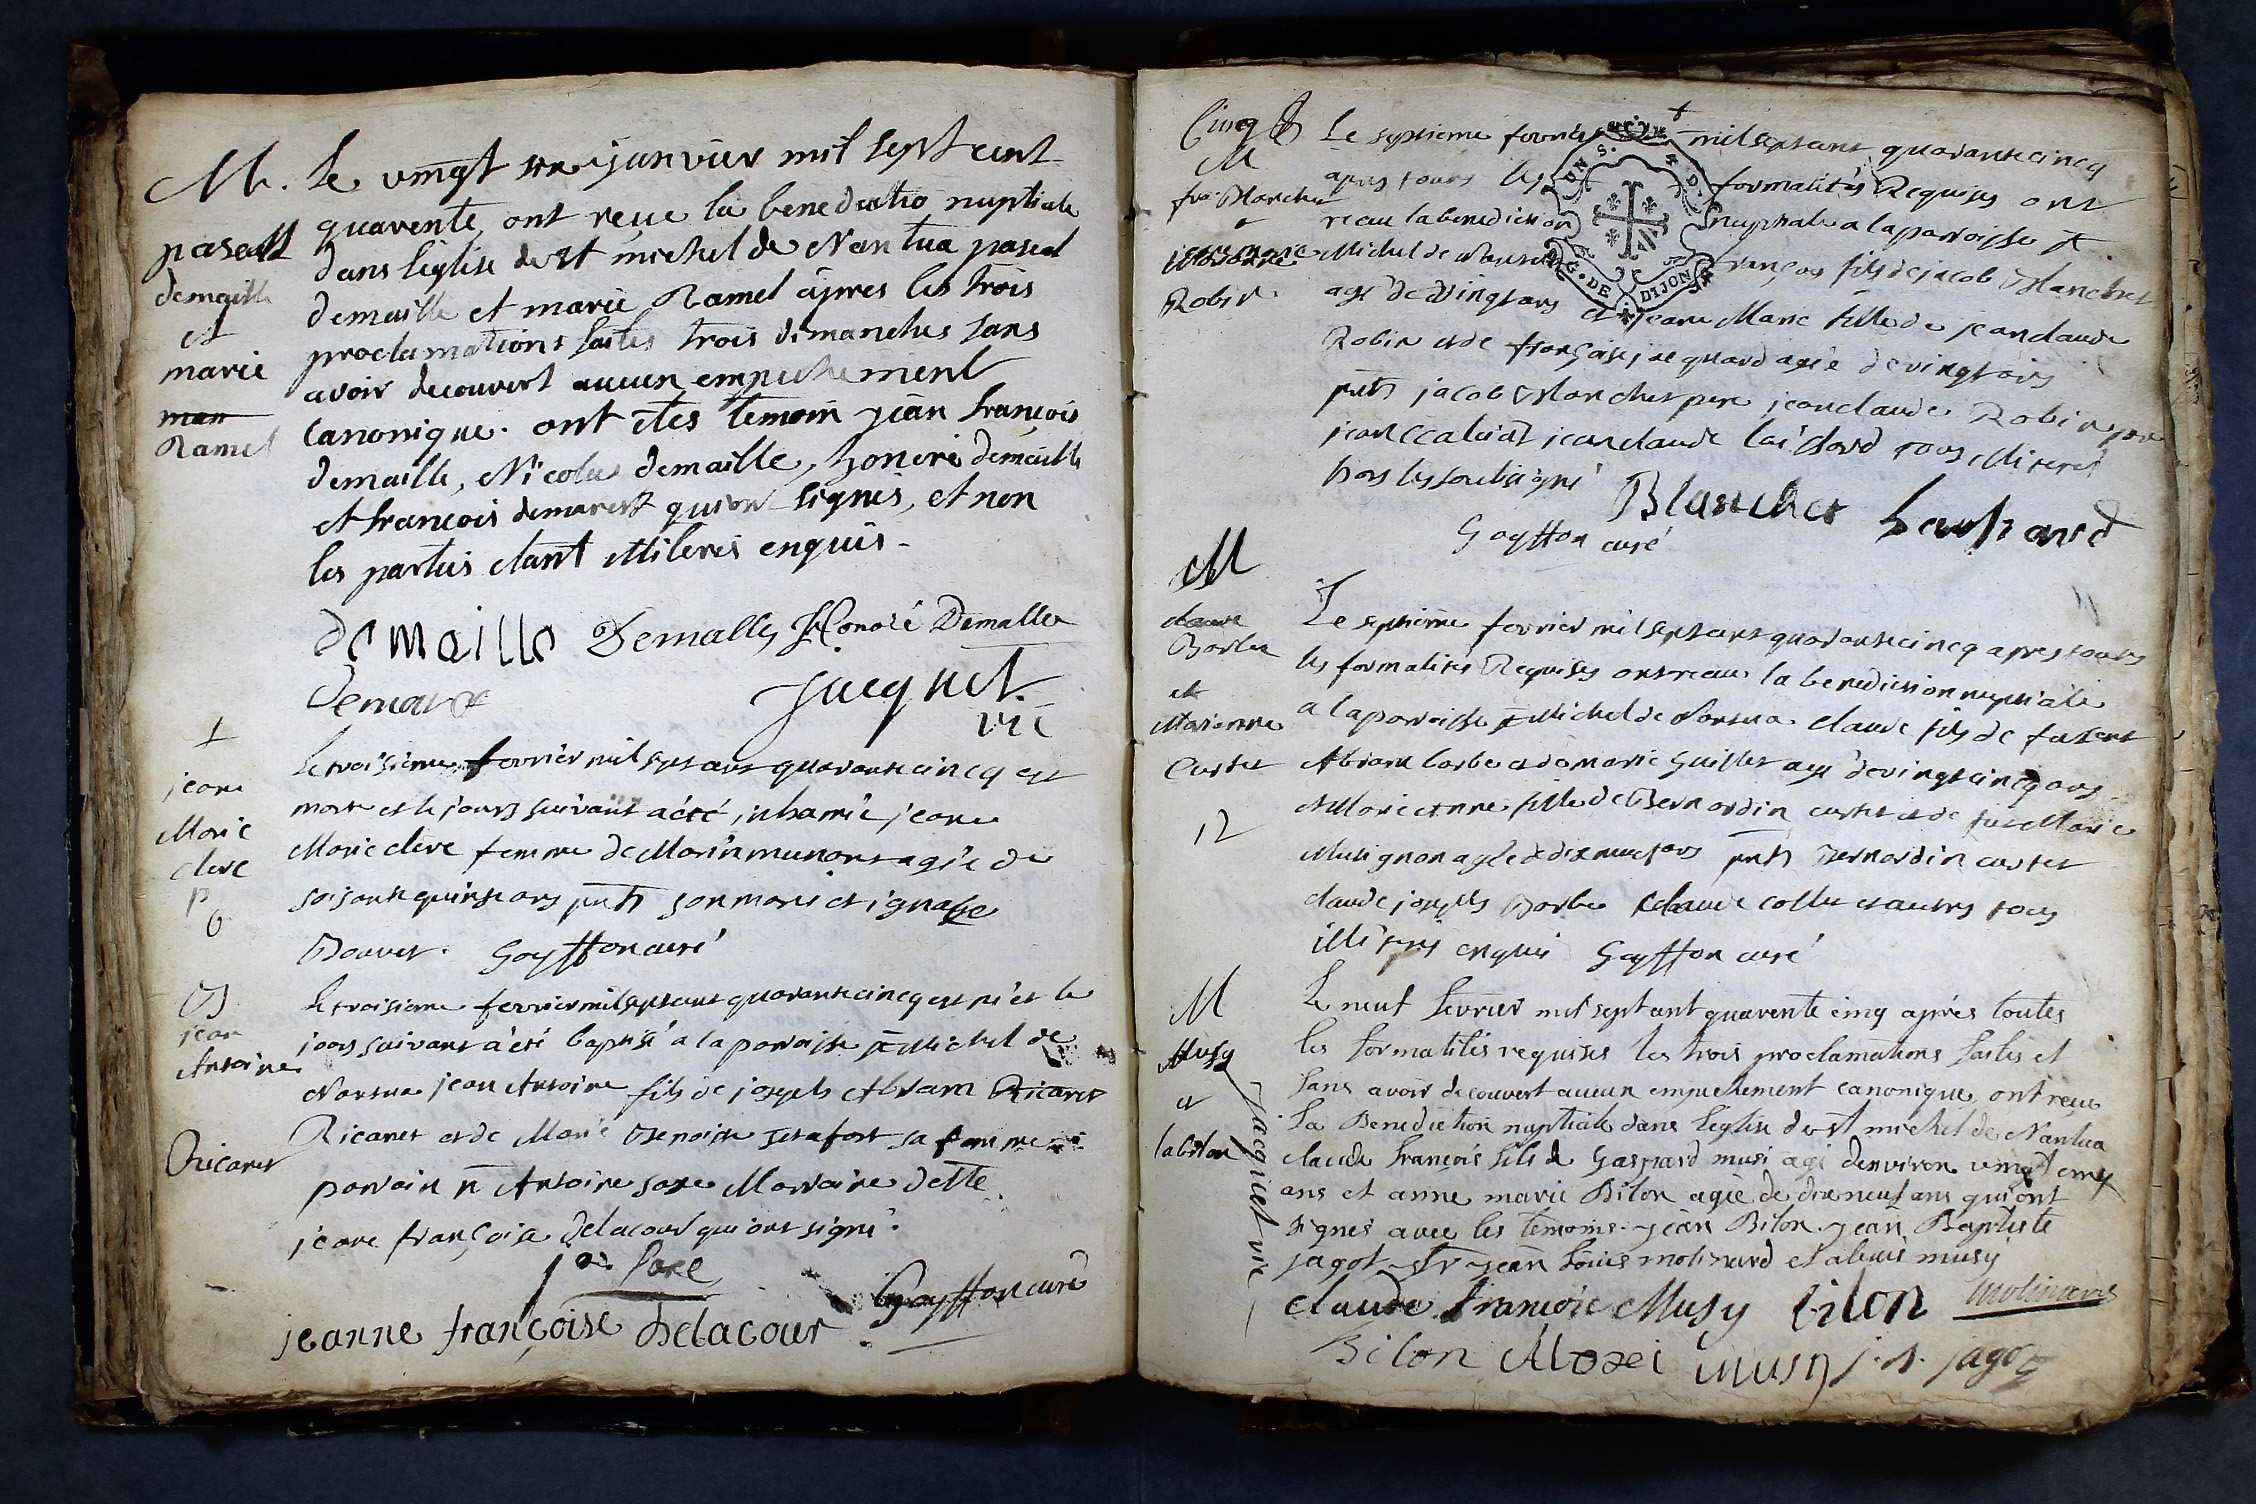 M. Le vingt janvier mil sept cent
quarente, ont reçue la benediction nuptiale
dans l'eglise de st michel de Nantua pascal
demaille et marie Ramel âpres les trois
proclamations faites trois dimanches sans
avoir decouvert aucun empechement
canonique. ont etes temoin jean françois
demaille, Nicolas demaille, honoré demaille
et françois demarest qui ont signés, et non
les parties etant illiterés enquis
pascal
demaille
et
marie
Ramel
demaille Demalle Honoré Demalle
Jacquet
vic
+
jeane
Marie
clerc
Le troisieme fevrier mil sept cent quarante cincq est
morte et le jours suivant a été inhamée jeane
Marie clerc femme de Marin agée de
soisante quinse ans pnts son maris et ignasse
Bouvet. Goyffon curé
B
jean
Antoine
Ricaret
Le troisieme fevrier mil sept cent quarante cincq est né et le
jours suivant a été baptisé a la paroisse st Michel de
Nantua jean Antoine fils de joseph Abram Ricaret
Ricaret et de Marie Benoiste sa femme
parrain Antoine Marraine dette
jeane françoise delacour qui ont signé.
Goyffon curé
jeanne françoise Delacour
Cincq
M
fr Blanchet
et
jeane marie
Robin
Le septieme fevrier mil sept cent quarante cincq
apres tours les formalités Requises ont
receu la benediction nuptiale a la paroisse st
Michel de Nantua françois fils de jacob Blanchet
agé de vingt ans et jeane Marie fille de jean claude
Robin et de françoise agée de vingt ans
pnts jacob Blanchet pere jean claude Robin pere
jean jean claude tous illiterés
hors les soubsigné
UNS. A.D.
G. DE DIJON
Blanchet
Goyffon curé
M
claude
Barbe
et
Marianne
Curtet
12
Le septieme fevrier mil sept cent quarante cincq apres tours
les formalités Requises ont receu la benediction nuptiale
a la paroisse st Michel de Nantua claude fils de
Abram barbe et de marie agé de vingt cincq ans
et Marie Anne fille de Bernardin curtet et de fue Marie
Musignon agée de dix neuf ans pnts Bernardin curtet
claude joseph Barbe claude collet et autres tous
illiterés enquis Goyffon curé
M
Musy
et
la bilon
Jacquet vic
Le neuf fevrier mil sept cent quarente cinq aprés toutes
les formalités requises les trois proclamations faites et
sans avoir decouvert aucun empechement canonique, ont reçue
la Benediction nuptiale dans l'eglise de st michel de Nantua
claude françois fils de Gaspard musi agé d'environ vingt cinq
ans et anne marie Bilon agée de dix neuf ans qui ont
signés avec les temoins jean Bilon jean Baptiste
jagot sr jean Louis molinard et alexis musy
claude francois Musy bilon molinard
Bilon Musy j. B. jagot